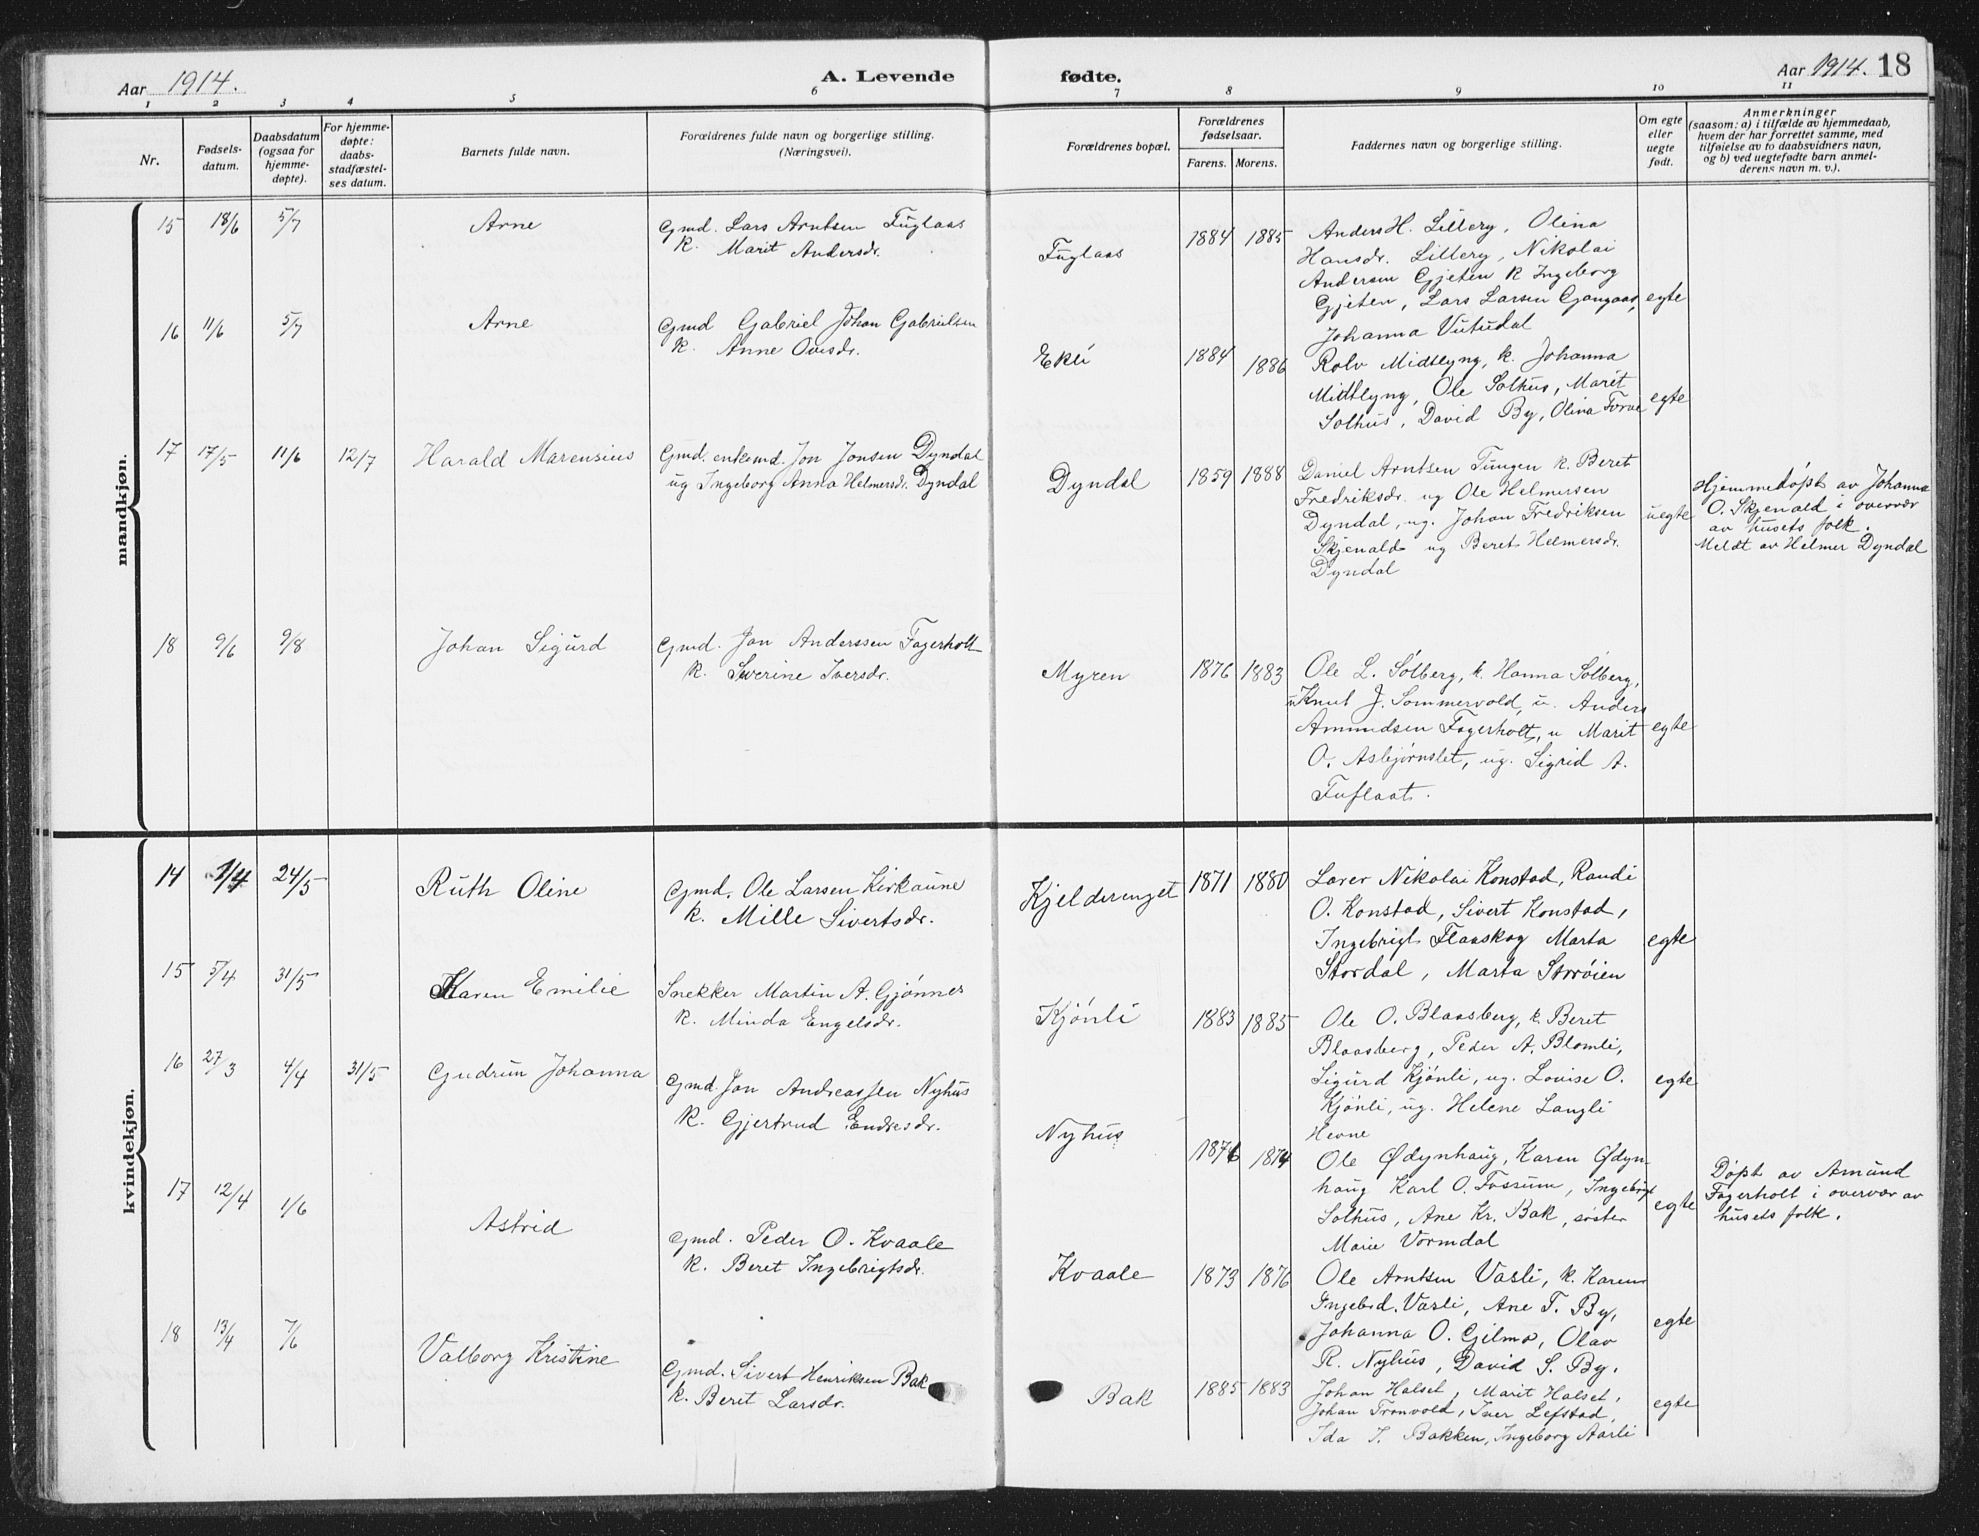 Aar 1914.
A. Levende
fødte.
Aar 1914. 18
1 2 3 4 5 6 7 8 9 10 11
Nr.
Fødsels-
datum.
Daabsdatum
(ogsaa for
hjemme-
døpte).
For hjemme-
døpte:
daabs-
stadfæstel-
ses datum.
Barnets fulde navn.
Forældrenes fulde navn og borgerlige stilling.
(Næringsvei).
Forældrenes bopæl.
Forældrenes
fødselsaar.
Farens. Morens.
Faddernes navn og borgerlige stilling.
Om egte
eller
uegte
født.
Anmerkninger
(saasom: a) i tilfælde av hjemmedaab,
hvem der har forrettet samme, med
tilføielse av to daabsvidners navn,
og b) ved uegtefødte barn anmel-
derens navn m. v.).
mandkjøn.
15 18/6 5/7 Arne
Gmd. Lars Arntsen Fuglaas
k. Marit Andersdr.
Fuglaas 1884 1885
Anders H. Lillery, Olina
Hansdr. Lillery, Nikolai
Andersen Gjeten k Ingeborg
Gjeten, Lars Larsen Gangaas, egte
Johanna Vutudal
16 11/6 5/7 Arne
Gmd Gabriel Johan Gabrielsen
k. Anne Ovesdr.
Ekli 1884 1886
Rolv Midtlyng, k. Johanna
Midtlyng, Ole Solhus, Marit
Solhus, David By, Olina Forve egte
17 17/5 11/6 12/7 Harald Marensius
Gmd. enkemd. Jon Jonsen Dyndal
ug Ingeborg Anna Helmersdr. Dyndal
Dyndal 1859 1888
Daniel Arntsen Tungen k. Beret
Fredriksdr. ug Ole Helmersen
Dyndal, ug. Johan Fredriksen
Skjenald ug Beret Helmersdr.
Dyndal
uegte
Hjemmedøpt av Johanna
O. Skjenald i overvær
av husets folk.
Meldt av Helmer Dyndal
18 9/6 9/8 Johan Sigurd
Gmd. Jon Anderssen Fagerholt
k. Severine Iversdr.
Myren 1876 1883
Ole L. Solberg, k. Hanna Solberg,
u Knut J. Sommervold, u. Anders
Amundsen Fagerholt, u Marit egte
O. Asbjørnslet, ug. Sigrid A.
Tuflaat.
kvindekjøn.
14 1/4 24/5 Ruth Oline
Gmd. Ole Larsen Kirkaune
k. Mille Sivertsdr.
Kjelderenget 1871 1880
Lærer Nikolai Konstad, Randi
O. Konstad, Sivert Konstad,
Ingebrigt Flaaskog Marta egte
Stordal, Marta Storøien
15 5/4 31/5 Karen Emilie
Snekker Martin A. Gjønnes
k. Minda Engelsdr.
Kjønli 1883 1885
Ole O. Blaasberg, k. Beret
Blaasberg, Peder A. Blomli,
Sigurd Kjønli, ug. Lovise O. egte
Kjønli, ug. Helene Langli
Hevne
16 27/3 4/4 31/5 Gudrun Johanna
Gmd. Jon Andreassen Nyhus
k. Gjertrud Endresdr.
Nyhus 1876 1874
Ole Ødynhaug, Karen Ødyn-
haug Karl O. Fossum, Ingebrigt
Solhus, Ane Kr. Bak, søster egte
Marie Vormdal
Døpt av Amund
Fagerholt i overvær av
husets folk.
17 12/4 1/6 Astrid
Gmd. Peder O. Kvaale
k. Beret Ingebrigtsdr.
Kvaale 1873 1876
Ole Arntsen Vasli, k. Karen
Ingebd. Vasli, Ane T. By,
Johanna O. Gjilmo, Olav egte
R. Nyhus, David S. By.
18 13/4 7/6 Valborg Kristine
Gmd. Sivert Henriksen Bak
k. Beret Larsdr.
Bak 1885 1883
Johan Halset, Marit Halset,
Johan Tronvold, Iver Lefstad, egte
Ida I. Bakken, Ingeborg Aarli